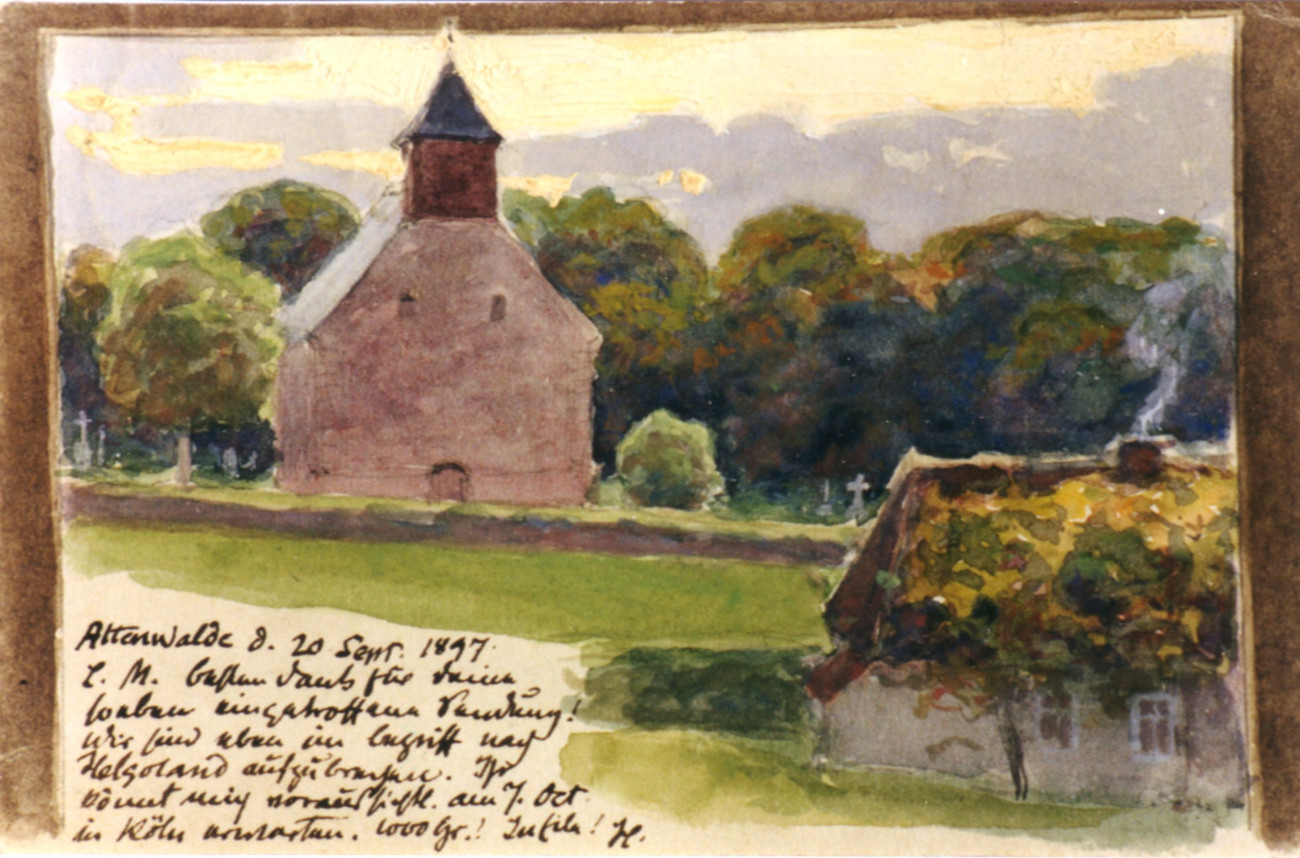 Altenwalde d. 20 Sept. 1897.
L. M. besten Dank für deine
soeben eingetroffene Sendung!
Wir sind eben im begriff nach
Helgoland aufzubrechen. Ihr
könnt mich voraussichtl. am 7. Oct.
in Köln erwarten. 1000 Gr.! In Eile! H.